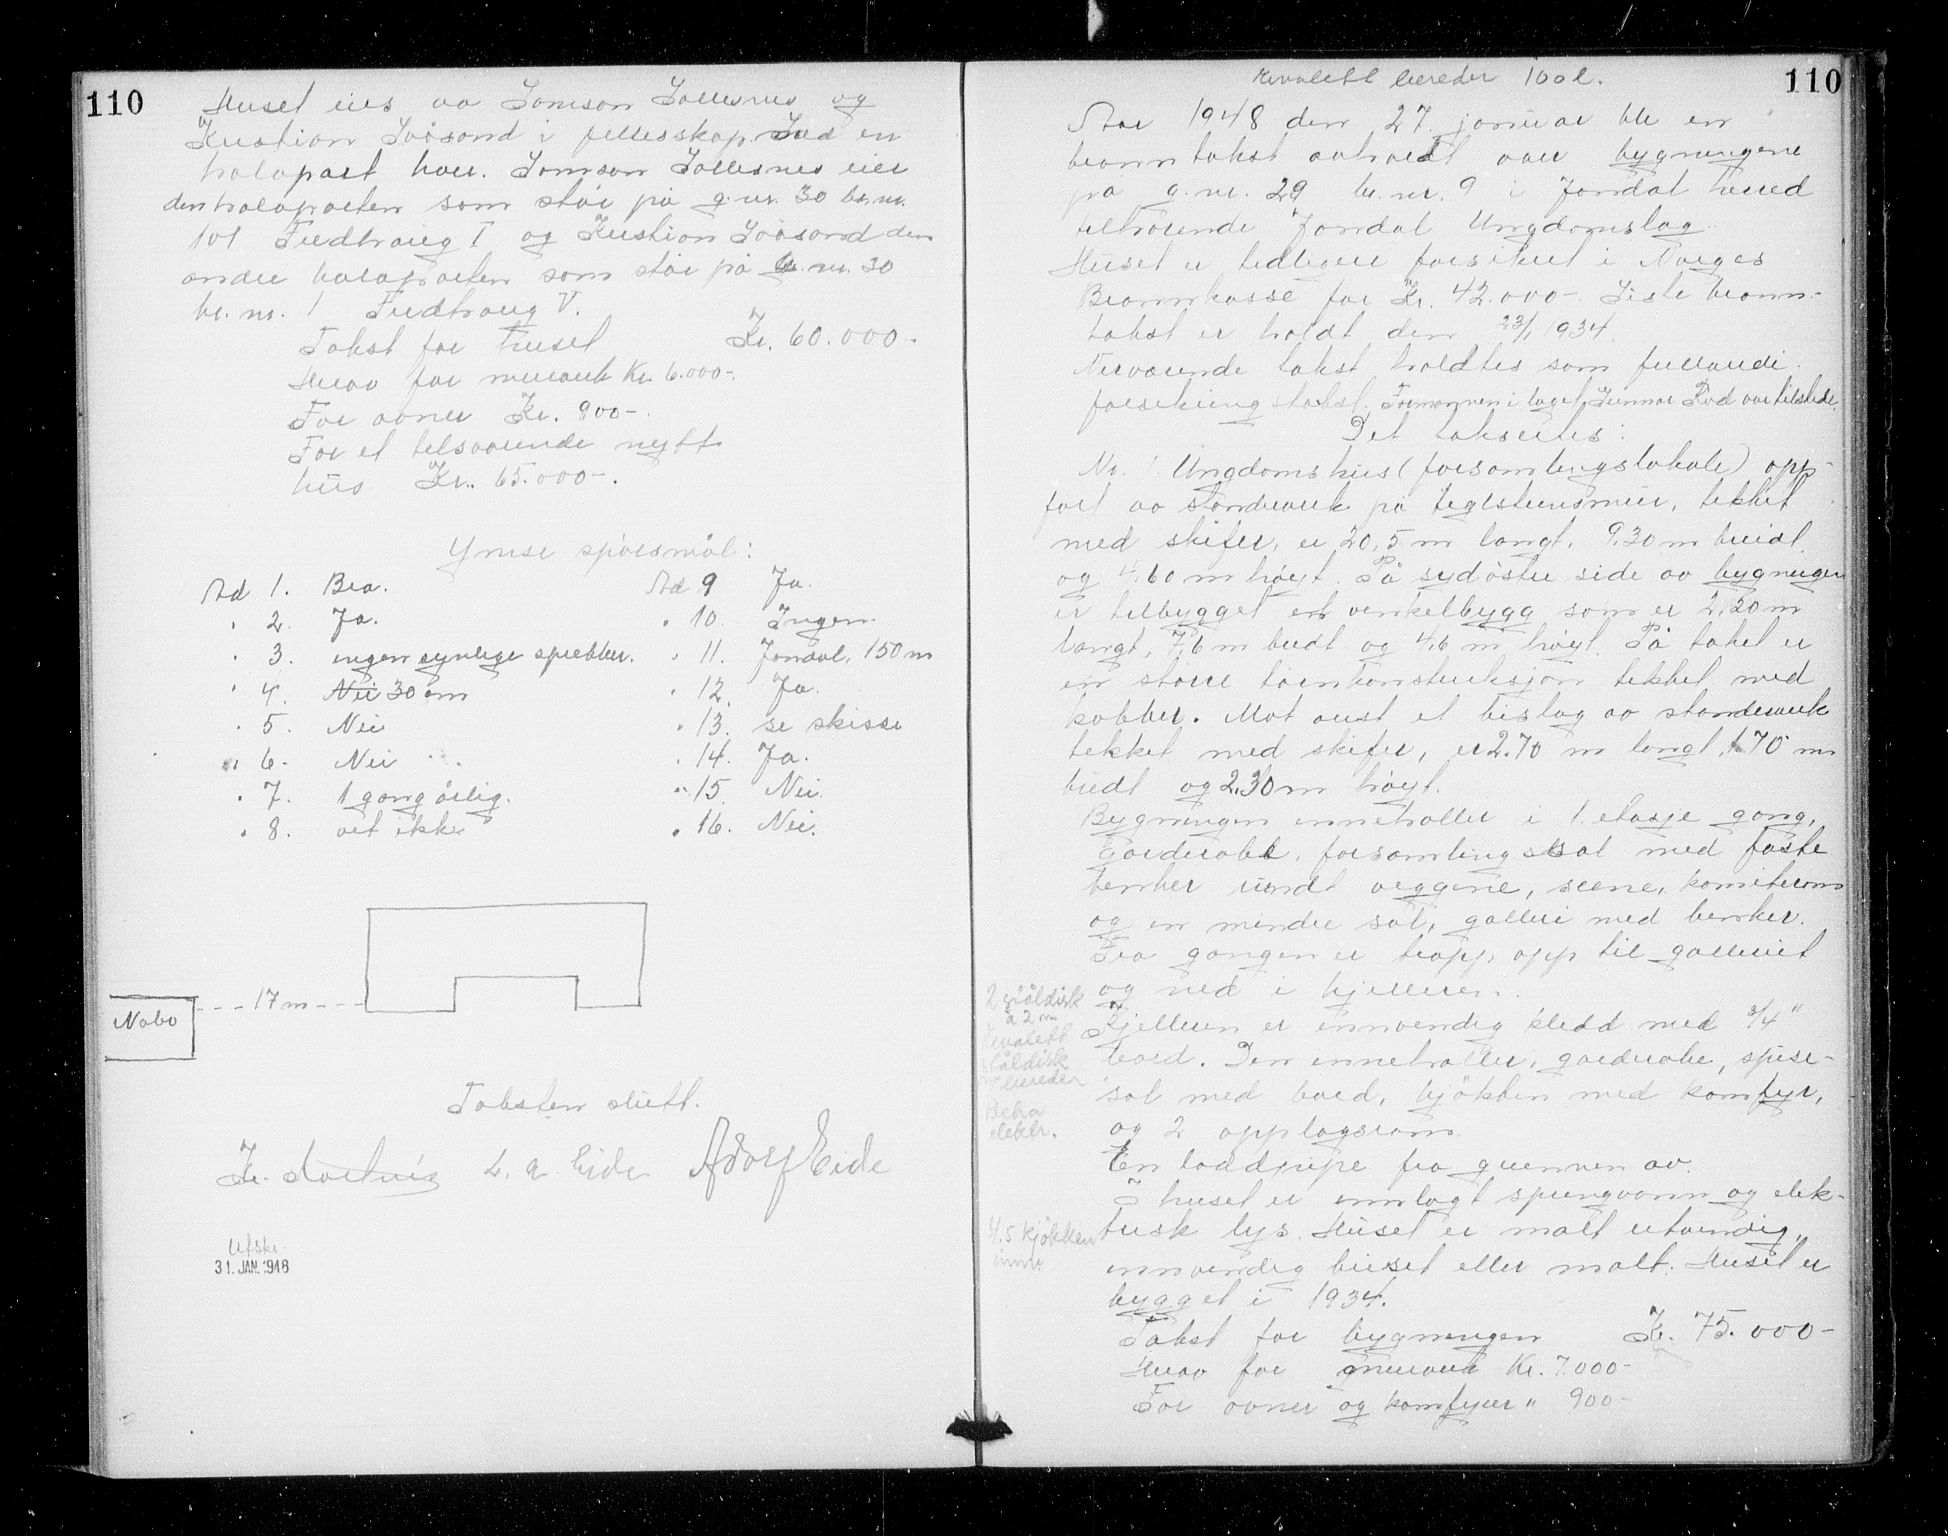 110
Huset eies av Samson Sollesnes og
Kristian Soösand i fellesskap med en
halvpart hver. Samson Sollesnes eier
den halvparten som står på g.nr. 30 br.nr.
101 Fredhaug I og Kristian Soösand den
andre halvparten som står på G.nr. 30
br.nr. 1 Fredhaug V.
Takst for huset Kr. 60.000-
Herav for murverk Kr. 6.000-.
For ovner Kr. 900-.
For et tilsvarende nytt
hus Kr. 65.000-.
Ymse spörsmål:
Ad 1. Bra. Ad 9 Ja.
" 2. Ja. " 10. Ingen.
" 3. ingen synlige sprekker. " 11. Jondal, 150 m
" 4. Nei 30 cm " 12. Ja.
" 5. Nei " 13. se skisse
" 6. Nei " 14. Ja.
" 7. 1 gang årlig. " 15. Nei.
" 8. vet ikke " 16. Nei.
Nabo - - - 17 m - - -
Taksten slutt.
L. A. Eide Adolf Eide
Utskr.
31. JAN. 1948
110
bereder 100 l.
Aar 1948 den 27 januar ble en
branntakst avholdt over bygningene
på g.nr. 29 br.nr. 9 i Jondal herred
tilhörende Jondal Ungdomslag.
Huset er tidligere forsikret i Norges
Brannkasse for Kr. 42.000-. Siste brann-
takst er holdt den 23/1 1934.
Nerværende takst holdtes som fullverdi
forsikringstakst. Formannen i laget Gunnar Kvd var tilstede.
Det takseres:
No. 1 Ungdomshus (forsamlingslokale) opp-
fört av standerverk på teglsteinsmur, tekket
med skifer, er 20,5 m langt, 9,30 m breidt
og 4,60 m höyt. På sydöstre side av bygningen
er tilbygget ett vinkelbygg som er 2,20 m
langt, 7,6 m bredt og 4,6 m höyt. På taket er
en större tårnkonstruksjon tekket med
kobber. Mot aust et bislag av standerverk
tekket med skifer, er 2.70 m langt, 1.70 m
bredt og 2.30 m höyt.
Bygningen inneholler i 1. etasje gang,
garderobe, forsamlingssal med faste
benker rundt veggene, scene, komiterom
og en mindre sal, galleri med benker.
Fra gangen er trapp, opp til galleriet
og ned i kjelleren.
2 ståldisk
a 2 m
ståldisk
bereder
Beha
elektr.
Kjelleren er innvendig kledd med 3/4"
bord. Den inneholler, garderobe, spise-
sal med bord, kjökken med komfyr,
og 2 opplagsrom.
En loddpipe fra grunnen av.
I huset er innlagt springvann og elek-
trisk lys. Huset er malt utvendig,
4.5 kjökken
innvendig beiset eller malt. Huset er
bygget i 1934.
Takst for bygningen Kr. 75.000-
Herav for murverk Kr. 7.000-
For ovner og komfyrer " 900-